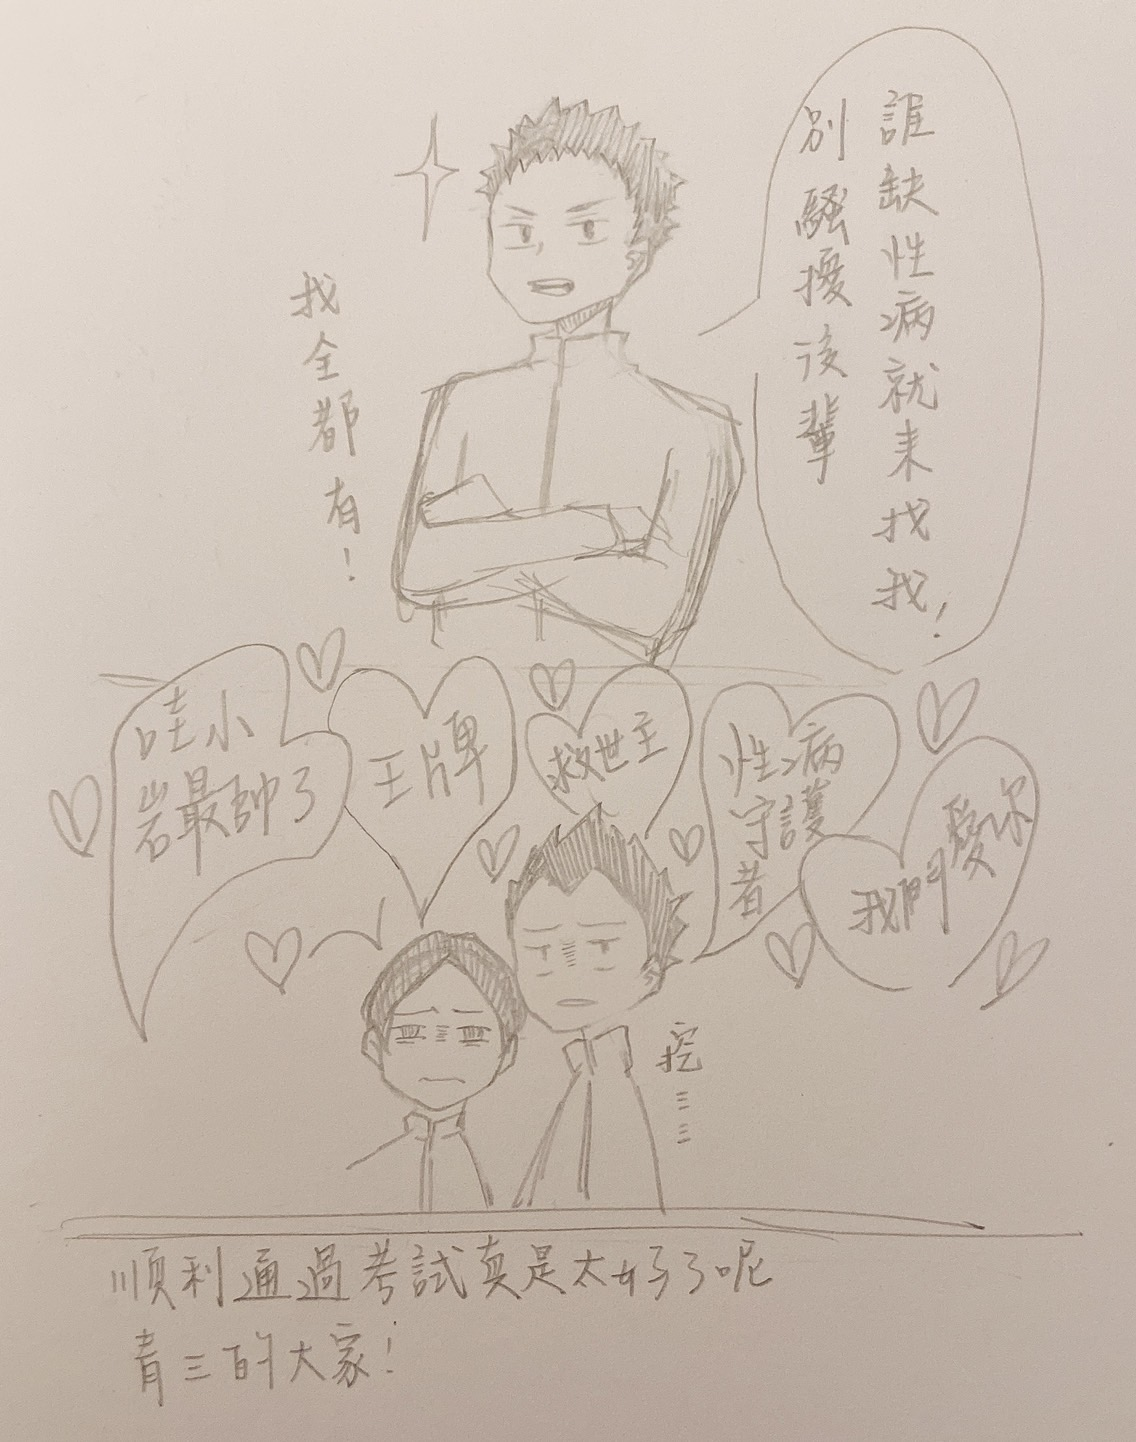 誰缺性病就来找我!
別騷擾後輩
我全都有!
哇小
岩最帥了
王牌
救世主
性病
守護
者
我們愛你
挖……
順利通過考試真是太好了呢
青三的大家!